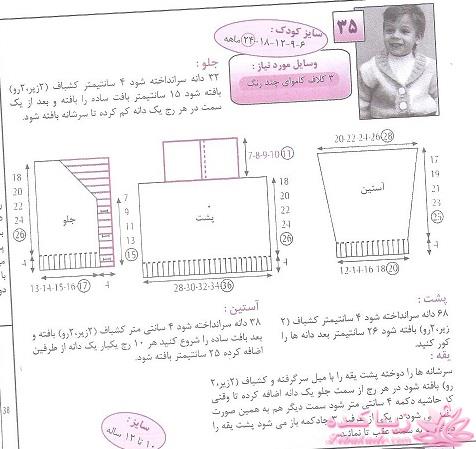 ۳۵
سایز کودک :
۶-۹-۱۲-۱۸-۲۴ ماهه
وسایل مورد نیاز :
۳ کلاف کاموای چند رنگ
جلو :
۳۲ دانه سرانداخته شود ۴ سانتیمتر کشباف (۲زیر،۲رو)
بافته شود ۱۵ سانتیمتر بافت ساده را بافته و بعد از یک
سمت در هر رج یک دانه کم کرده تا سرشانه بافته شود.
18
20
22
24
26
4
جلو
7
9
11
13
15
13-14-15-16-17
4
7-8-9-10-11
پشت
18
20
22
24
26
4
28-30-32-34-36
20-22-24-26-28
آستین
17
19
21
23
25
4
12-14-16-18-20
پشت :
۶۸ دانه سرانداخته شود ۴ سانتیمتر کشباف (۲
زیر،۲رو) بافته شود ۲۶ سانتیمتر بعد دانه ها را
کور کنید.
آستین :
۳۸ دانه سرانداخته شود ۴ سانتی متر کشباف (۲زیر،۲رو) بافته و
بعد بافت ساده را شروع کنید هر ۱۰ رج یکبار یک دانه از طرفین
اضافه کرده ۲۵ سانتیمتر بافته شود.
یقه :
سرشانه ها را دوخته پشت یقه را با میل سرگرفته و کشباف (۲زیر،۲
رو) بافته شود در هر رج از سمت جلو یک دانه اضافه کرده تا وقتی
که حاشیه دکمه ۴ سانتی متر شود سمت دیگر هم به همین صورت
شود در یکی از طرفین ۳ جادکمه باز می شود پشت یقه را
به سمت عقب تا نمائید.
سایز :
۱۰ تا ۱۲ ساله
38